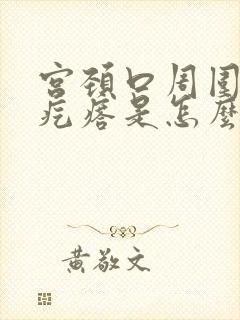 宫頸口周围
疙瘩是怎麼
黄敬文